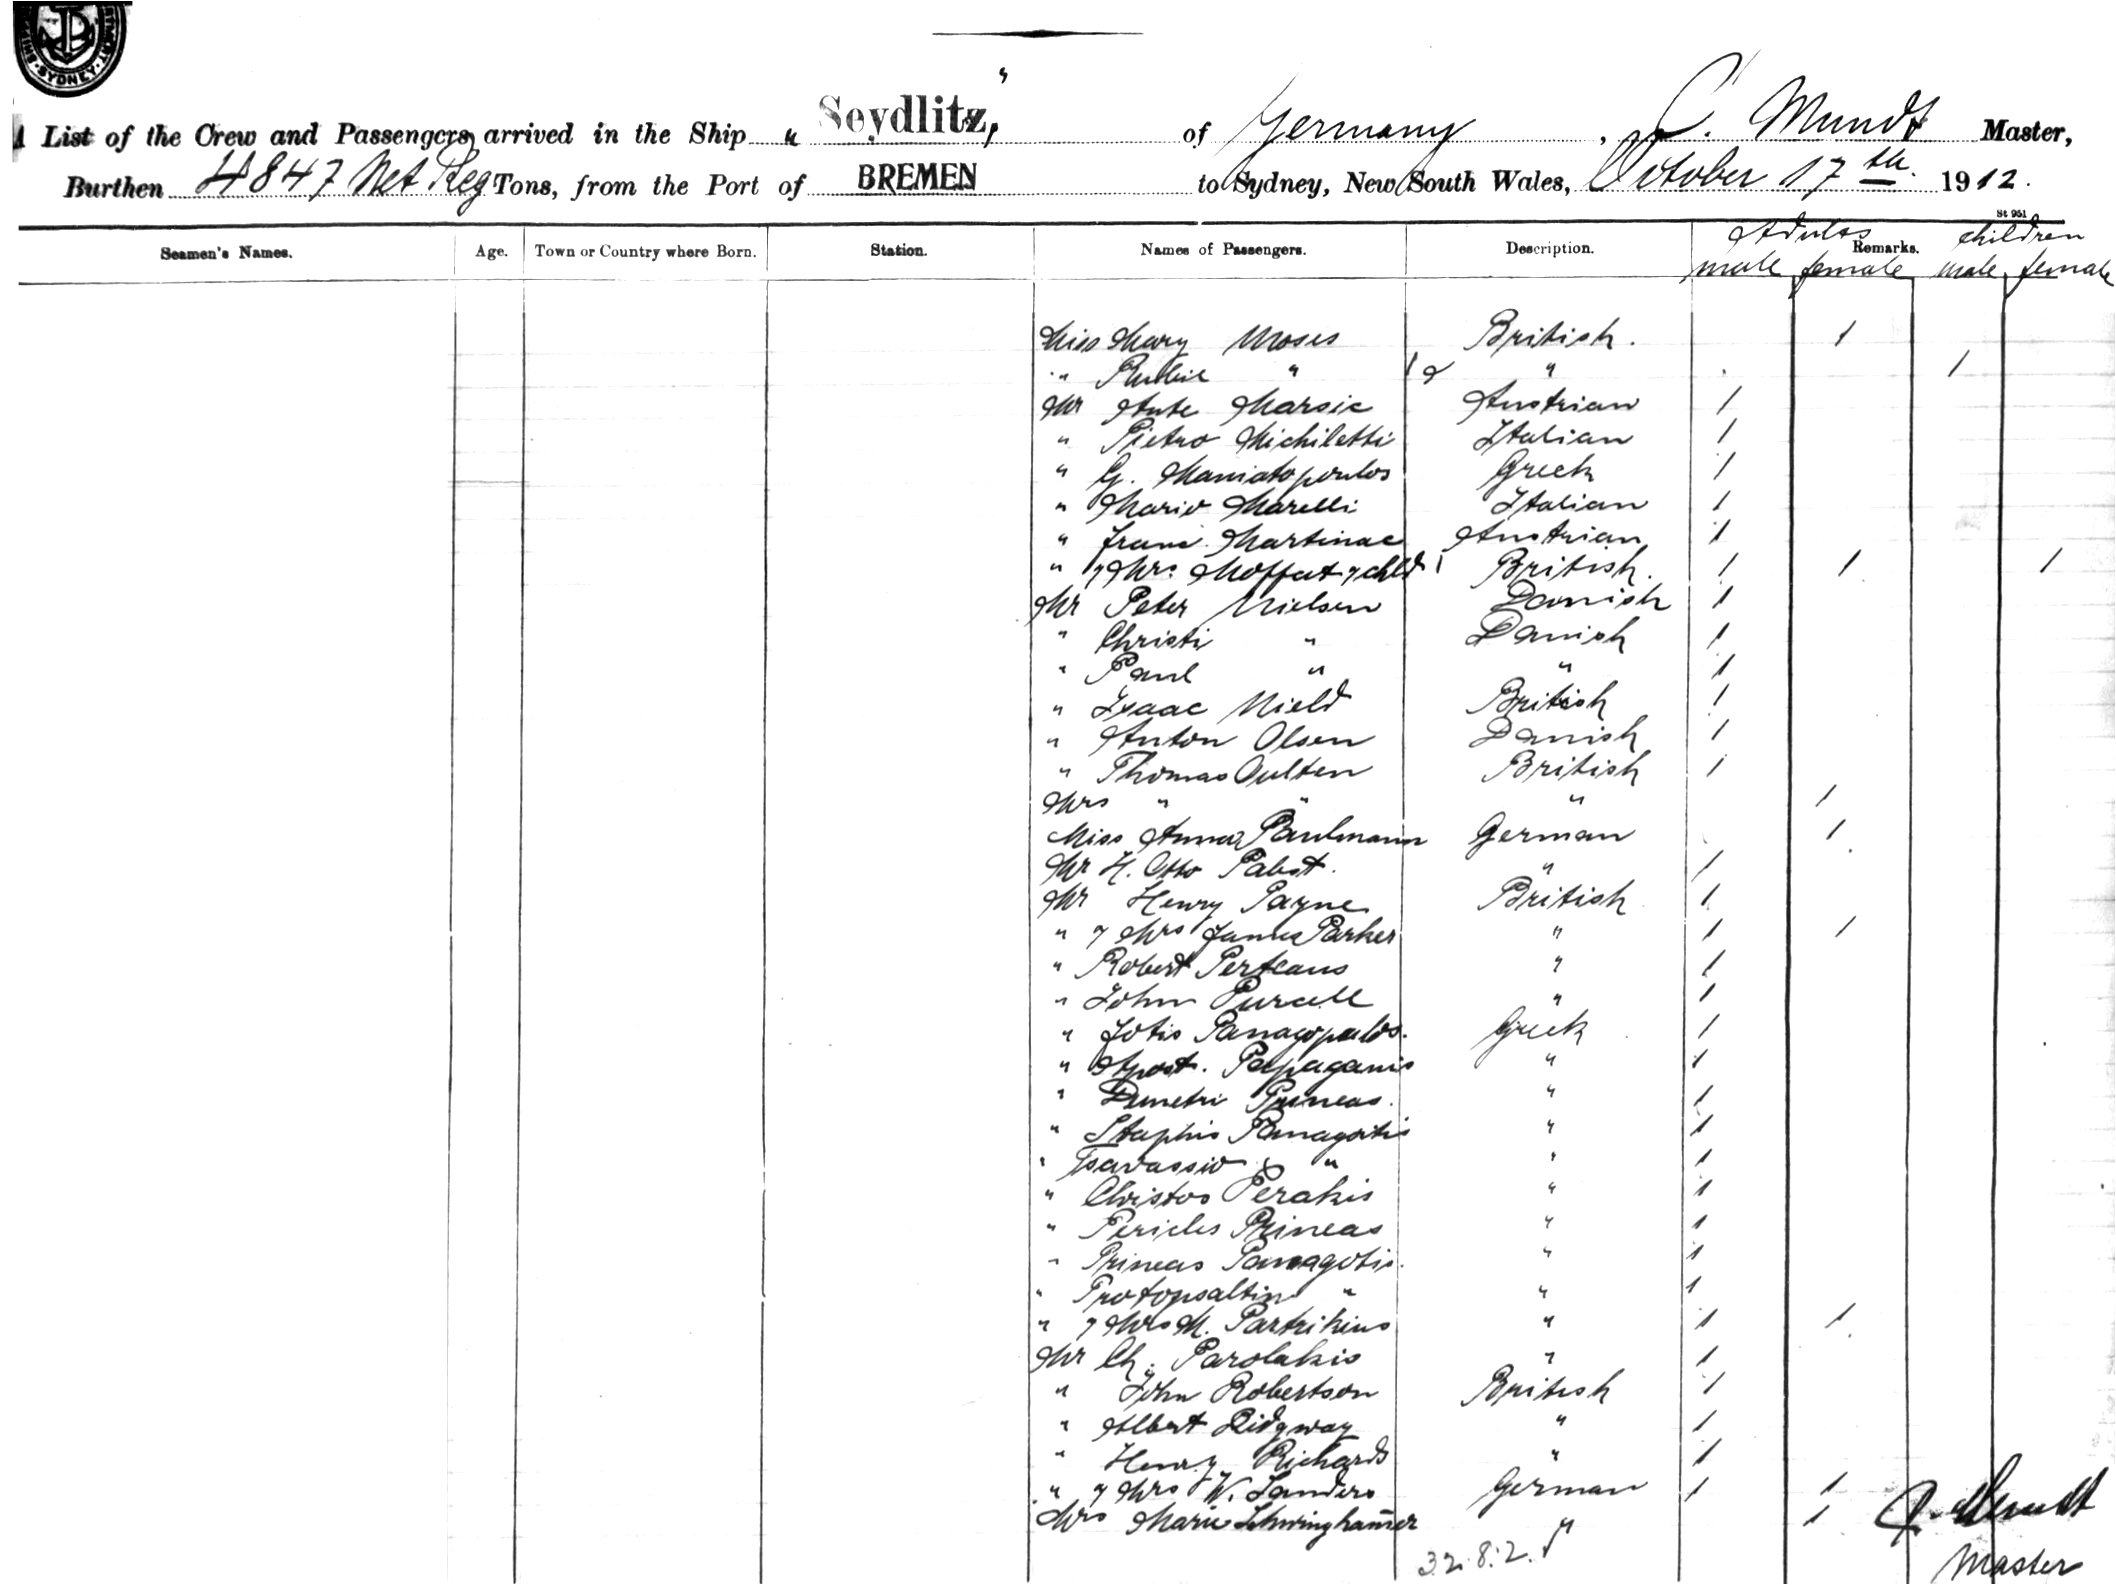 SYDNEY
A List of the Crew and Passengers arrived in the Ship „ Seydlitz, " of Germany , C. Mundt Master,
Burthen 4847 Net Reg Tons, from the Port of BREMEN to Sydney, New South Wales, October 17th. 1912.
St 951
Seamen's Names. Age. Town or Country where Born. Station. Names of Passengers. Description. Remarks.
Adults children
male female male female
Miss Mary Moses British. 1
" " " 1
Mr Ante Marsic Austrian 1
" Pietro Michiletti Italian 1
" G. Maniatopoulos Greek 1
" Mario Marelli Italian 1
" Franc Martinac Austrian 1
" & Mrs Moffat & chld 1 British. 1 1 1
Mr Peter Nielsen Danish 1
" Christi " Danish 1
" Paul " " 1
" Isaac Nield British 1
" Anton Olsen Danish 1
" Thomas Oulten British 1
Mrs " " " 1
Miss Anna Päulmann German 1
Mr H. Otto Pabst. " 1
Mr Henry Payne British 1
" & Mrs James Parker " 1 1
" Robert " 1
" John Purcell " 1
" Fotis Panagopulos. Greek 1
" Apost. Papaganis " 1
" Demetri Prineas. " 1
" Staphis Panagotis " 1
" " " 1
" Christos Perakis " 1
" Pericles Prineas " 1
" Prineas Panagotis. " 1
" Protopsaltin " " 1
" & Mrs M. Partrikius " 1 1
Mr Ch. Parolakis " 1
" John Robertson British 1
" Albert Ridgway " 1
" Henry Richards " 1
" & Mrs W. Sanders German 1 1
Mrs Marie Schwingham̄er " 1
C. Mundt
32.8.2.
Master